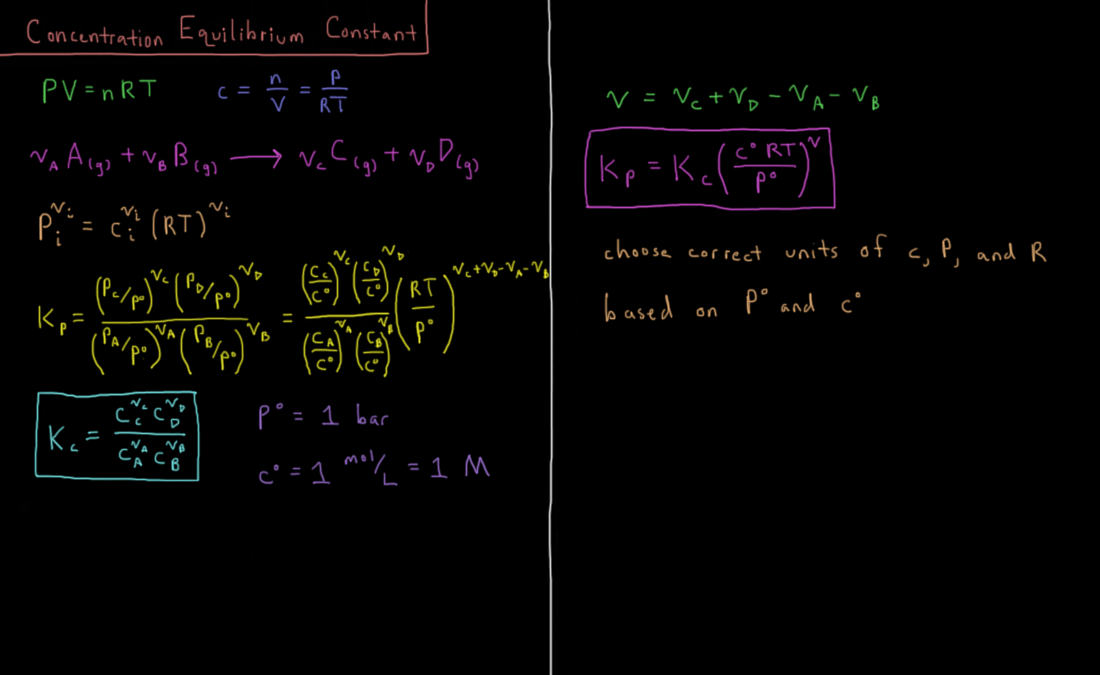 Concentration Equilibrium Constant
PV = nRT c = n/V = P/RT
ν_A A(g) + ν_B B(g) ⟶ ν_C C(g) + ν_D D(g)
P_i^ν_i = c_i^ν_i (RT)^ν_i
K_P = ((P_C/P°)^ν_C (P_D/P°)^ν_D) / ((P_A/P°)^ν_A (P_B/P°)^ν_B) = ((c_C/c°)^ν_C (c_D/c°)^ν_D) / ((c_A/c°)^ν_A (c_B/c°)^ν_B) (RT/P°)^(ν_C+ν_D-ν_A-ν_B)
K_c = (c_C^ν_C c_D^ν_D) / (c_A^ν_A c_B^ν_B)
P° = 1 bar
c° = 1 mol/L = 1 M
ν = ν_C + ν_D - ν_A - ν_B
K_P = K_c (c° RT / P°)^ν
choose correct units of c, P, and R
based on P° and c°